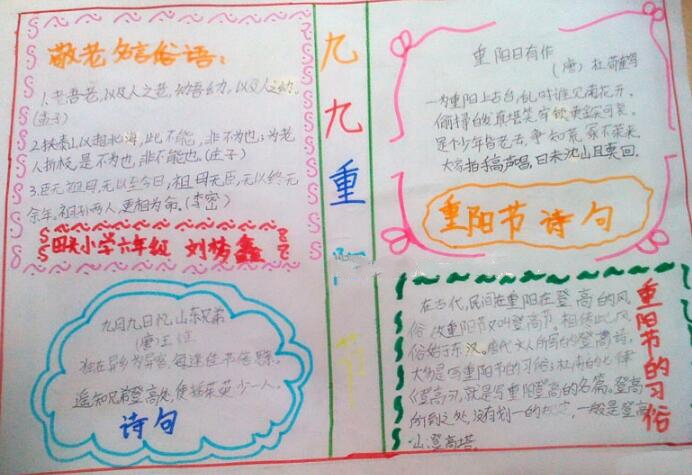 敬老名言俗语:
1.老吾老,以及人之老,幼吾幼,以及人之幼。
(孟子)
2.挟泰山以超北海,此不能,非不为也;为老
人折枝,是不为也,非不能也。(孟子)
3.臣无祖母,无以至今日,祖母无臣,无以终
余年。祖孙两人,更相为命。(李密)
小学六年级 刘梦鑫
九九重阳节
重阳日有作
(唐)杜荀鹤
一为重阳上古台,乱时谁见菊花开。
偷撏白发真堪笑,牢锁黄金实可哀。
是个少年皆老去,争知荒冢不荣来。
大家拍手高声唱,日未沈山且莫回。
重阳节诗句
九月九日忆山东兄弟
(唐)王维
独在异乡为异客,每逢佳节倍思亲。
遥知兄弟登高处,遍插茱萸少一人。
诗句
重阳节的习俗
在古代,民间在重阳在登高的风
俗,故重阳节又叫登高节。相传此风
俗始于东汉。唐代文人所写的登高诗,
大多是写重阳节的习俗;杜甫的七律
《登高》,就是写重阳登高的名篇。登高
所到之处,没有划一的规定,一般是登高
山、登高塔。